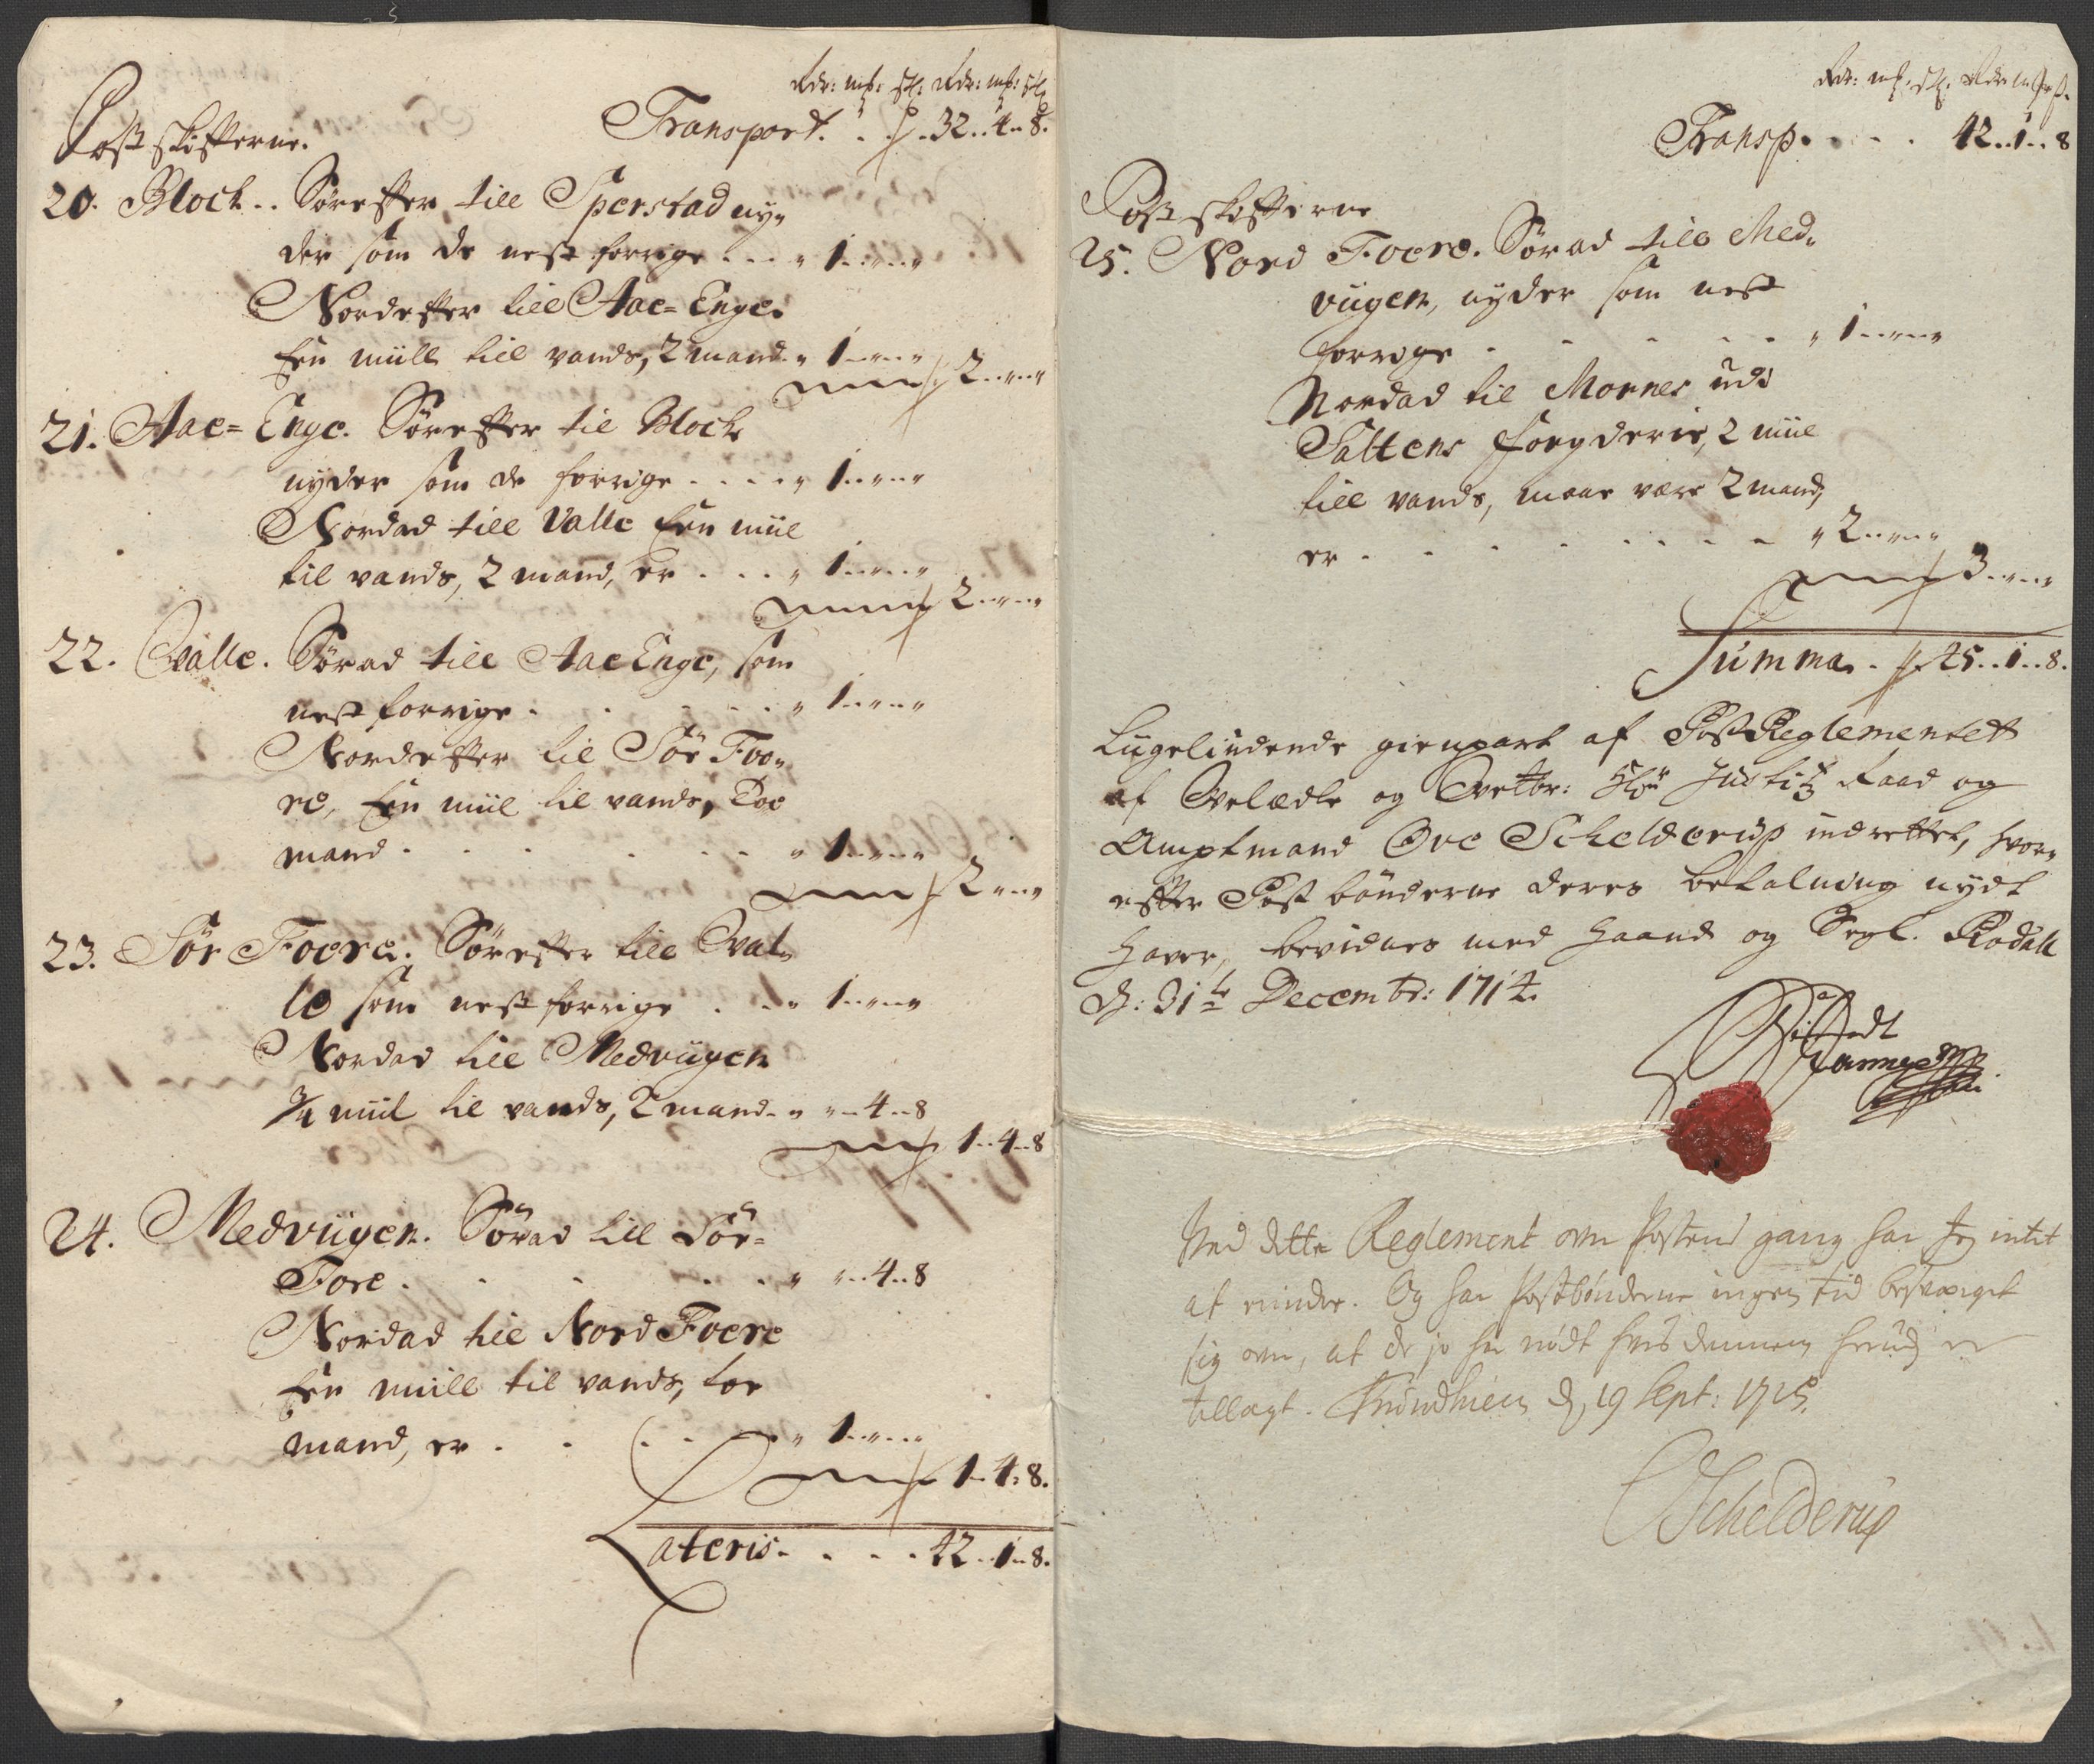 Rdr: mk: sk: Rdr: mk: sk:
Transport. . . 32..4..8.
Postskifterne.
20. Block.. Sørefter till Sperstad ny„
der som de nest forrige . . . „ 1..„..„
Nordefter till Aae=Enge.
Een miill till vands, 2 mand. „ 1..„..„
2..„..„
21. Aae=Enge. Sørefter til Block
nyder som de forrige . . . . „ 1..„..„
Nordad till Valle Een miil
til vands, 2 mand, er . . . „ 1..„..„
2..„..„
22. Valle. Sørad till Aae Enge, som
nest forrige . . . . . „ 1..„..„
Nordefter til Sør Foe„
re, Een miil til vands, Toe
mand . . . . . . „ 1..„..„
2..„..„
23. Sør Foere. Sørefter till Val„
le som nest forrige . . . „ 1..„..„
Nordad till Medviigen
3/4 miil til vands, 2 mand. „ „..4..8
1..4..8
24. Medviigen. Sørad till Sør=
Fore . . . . . „ „..4..8
Nordad till Nord Foere
Een miill til vands, toe
mand, er . . . . . „ 1..„..„
1..4..8.
Lateris. . . . . 42..1..8.
Rdr: mk: sk: Rdr: mk: sk:
Transp. . . . . 42..1..8
Postskifterne
25. Nord Foere. Sørad till Med„
viigen, nyder som nest
forrige . . . . . . „ 1..„..„
Nordad til Mornes udi
Saltens fogderie, 2 miil
till vands, maae være 2 mand,
er . . . . . . . . „ 2..„..„
3..„..„
Summa. 45..1..8.
Liigeliudende gienpart af Post Reglementet
af Velædle og Velbr: Hr Justitz Raad og
Amptmand Ove Schelderup indrettet, hvor„
efter Postbønderne deres betalning nydt
haver, bevidnes med Haand og Segl. Rødall
d: 31te Decembr: 1714.
Ved dette Reglement om Postens gang har Jeg intet
at minder. Og har Postbønderne ingen tid besværget
sig om, at de jo har nødt hvis dennem herudj er
tillagt. Trundhiem d, 19 Sept: 1715.
Schelderup